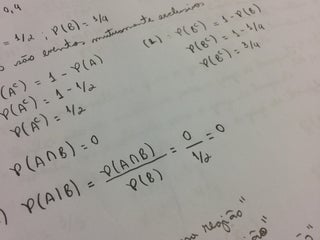 0,4
= 1/2 ; P(B) = 1/4
são eventos mutuamente exclusivos
P(Aᶜ) = 1 - P(A)
P(Aᶜ) = 1 - 1/2
P(Aᶜ) = 1/2
(2) : P(Bᶜ) = 1 - P(B)
P(Bᶜ) = 1 - 1/4
P(Bᶜ) = 3/4
P(A∩B) = 0
) P(A|B) = P(A∩B) / P(B) = 0 / 1/2 = 0
região"